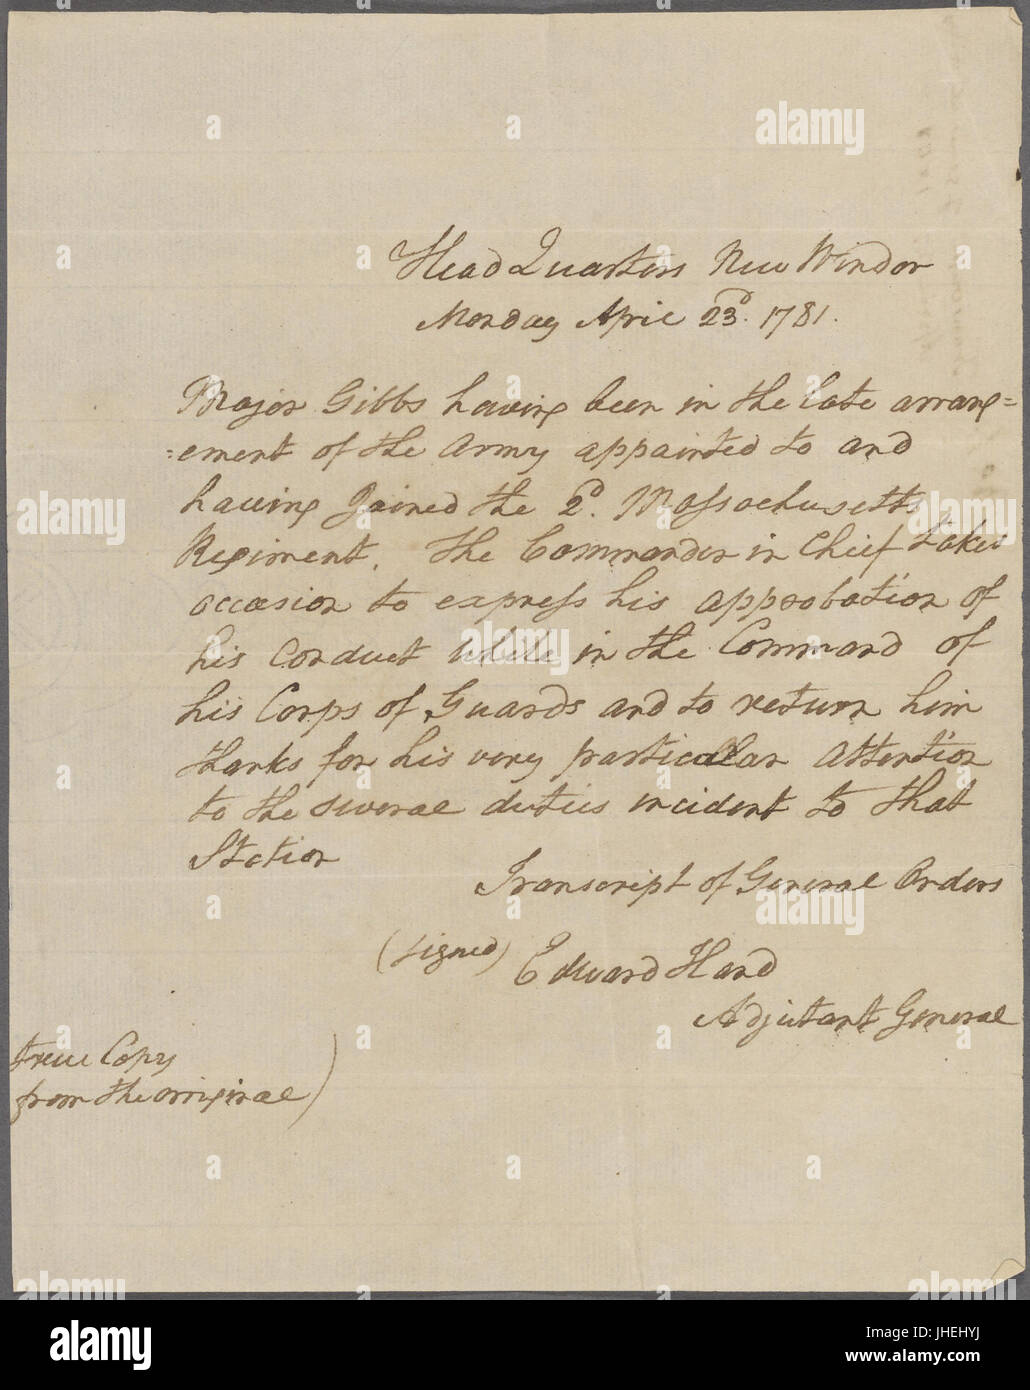 Head Quarters New Windor
Monday April 23d. 1781.
Major Gibbs having been in the late arrang=
=ement of the Army appointed to and
having Joined the 2d. Massachusetts
Regiment. The Commander in Chief takes
occasion to express his approbation of
his Conduct while in the Command of
his Corps of Guards and to return him
thanks for his very particular Attention
to the several duties incident to that
Station
Transcript of General Orders
(signed) Edward Hand
Adjutant General
true Copy
from the original)
alamy stock photo
alamy
Image ID: JHEHYJ
www.alamy.com